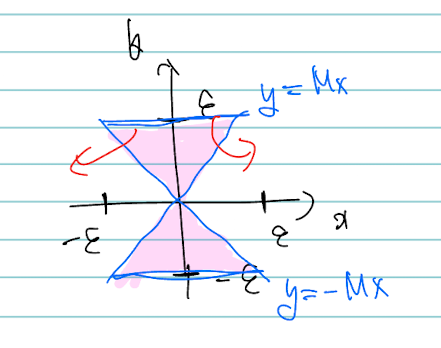 y
ε
y = Mx
-ε
ε
x
-ε
y=-Mx